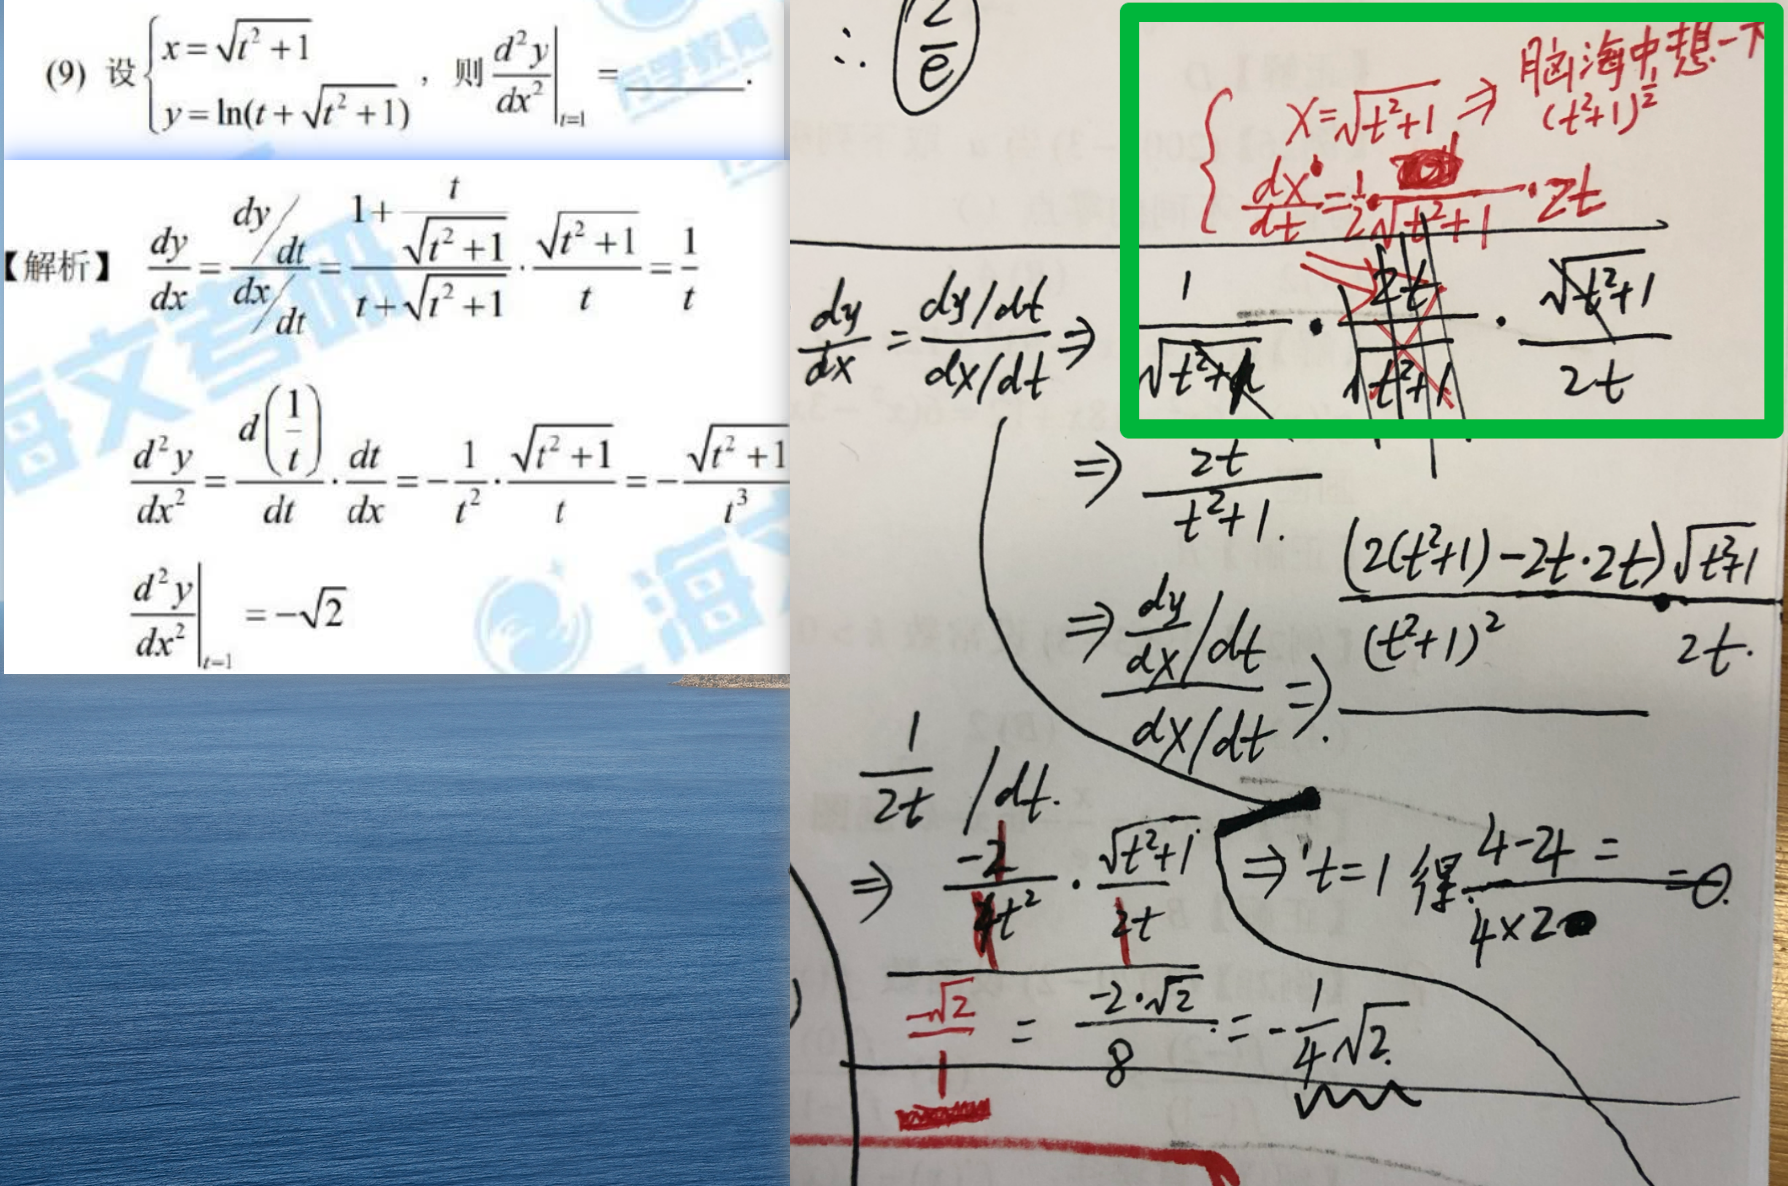 (9) 设 { x = √(t² + 1) , y = ln(t + √(t² + 1)) ，则 d²y/dx² |t=1 = ______.
【解析】 dy/dx = (dy/dt)/(dx/dt) = (1 + t/√(t² + 1))/(t + √(t² + 1)) · √(t² + 1)/t = 1/t
d²y/dx² = d(1/t)/dt · dt/dx = −1/t² · √(t² + 1)/t = −√(t² + 1)/t³
d²y/dx² |t=1 = −√2
海文考研
∴ 2/e
脑海中想一下
x = √(t²+1) ⇒ (t²+1)^½
dx/dt = ½ · 1/√(t²+1) · 2t
dy/dx = (dy/dt)/(dx/dt) ⇒ 1/√(t²+1) · 2t/√(t²+1) · √(t²+1)/2t
⇒ 2t/(t²+1).
⇒ (dy/dx/dt)/(dx/dt) ⇒ (2(t²+1) − 2t·2t)√(t²+1)/((t²+1)² · 2t.)
1/2t /dt.
⇒ −2/4t² · √(t²+1)/2t
⇒ t=1 得 4−4/4×2 = = 0.
−√2/1 = −2·√2/8 = −1/4 √2.